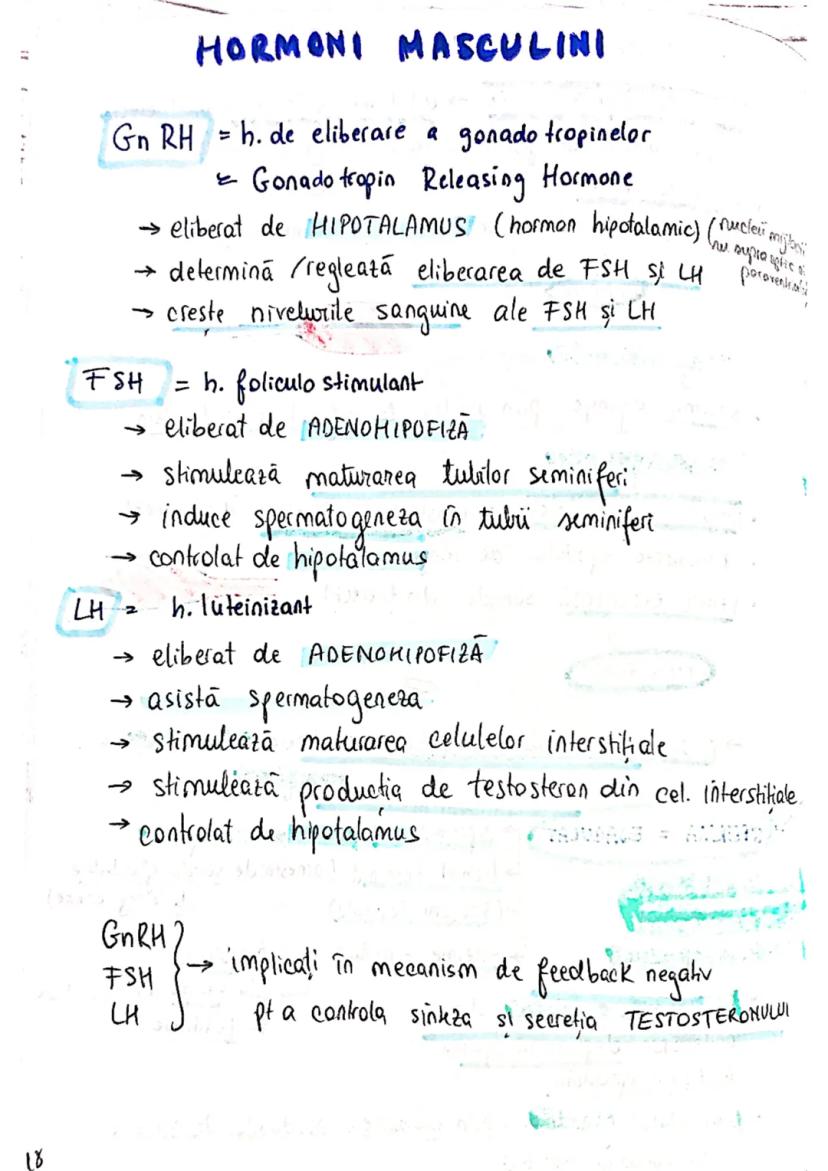 HORMONI MASCULINI
GnRH = h. de eliberare a gonadotropinelor
Gonadotropin Releasing Hormone
→ eliberat de HIPOTALAMUS (hormon hipotalamic) (nucleii mijlocii
nu supraoptic și
paraventricular
→ determină / reglează eliberarea de FSH și LH
→ crește nivelurile sanguine ale FSH și LH
FSH = h. foliculo stimulant
→ eliberat de ADENOHIPOFIZĂ
→ stimulează maturarea tubilor seminiferi
→ induce spermatogeneza în tubii seminiferi
→ controlat de hipotalamus
LH = h. luteinizant
→ eliberat de ADENOHIPOFIZĂ
→ asistă spermatogeneza
→ stimulează maturarea celulelor interstițiale
→ stimulează producția de testosteron din cel. interstițiale
→ controlat de hipotalamus
GnRH
FSH → implicați în mecanism de feedback negativ
LH pt a controla sinteza și secreția TESTOSTERONULUI
18